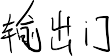 输出门